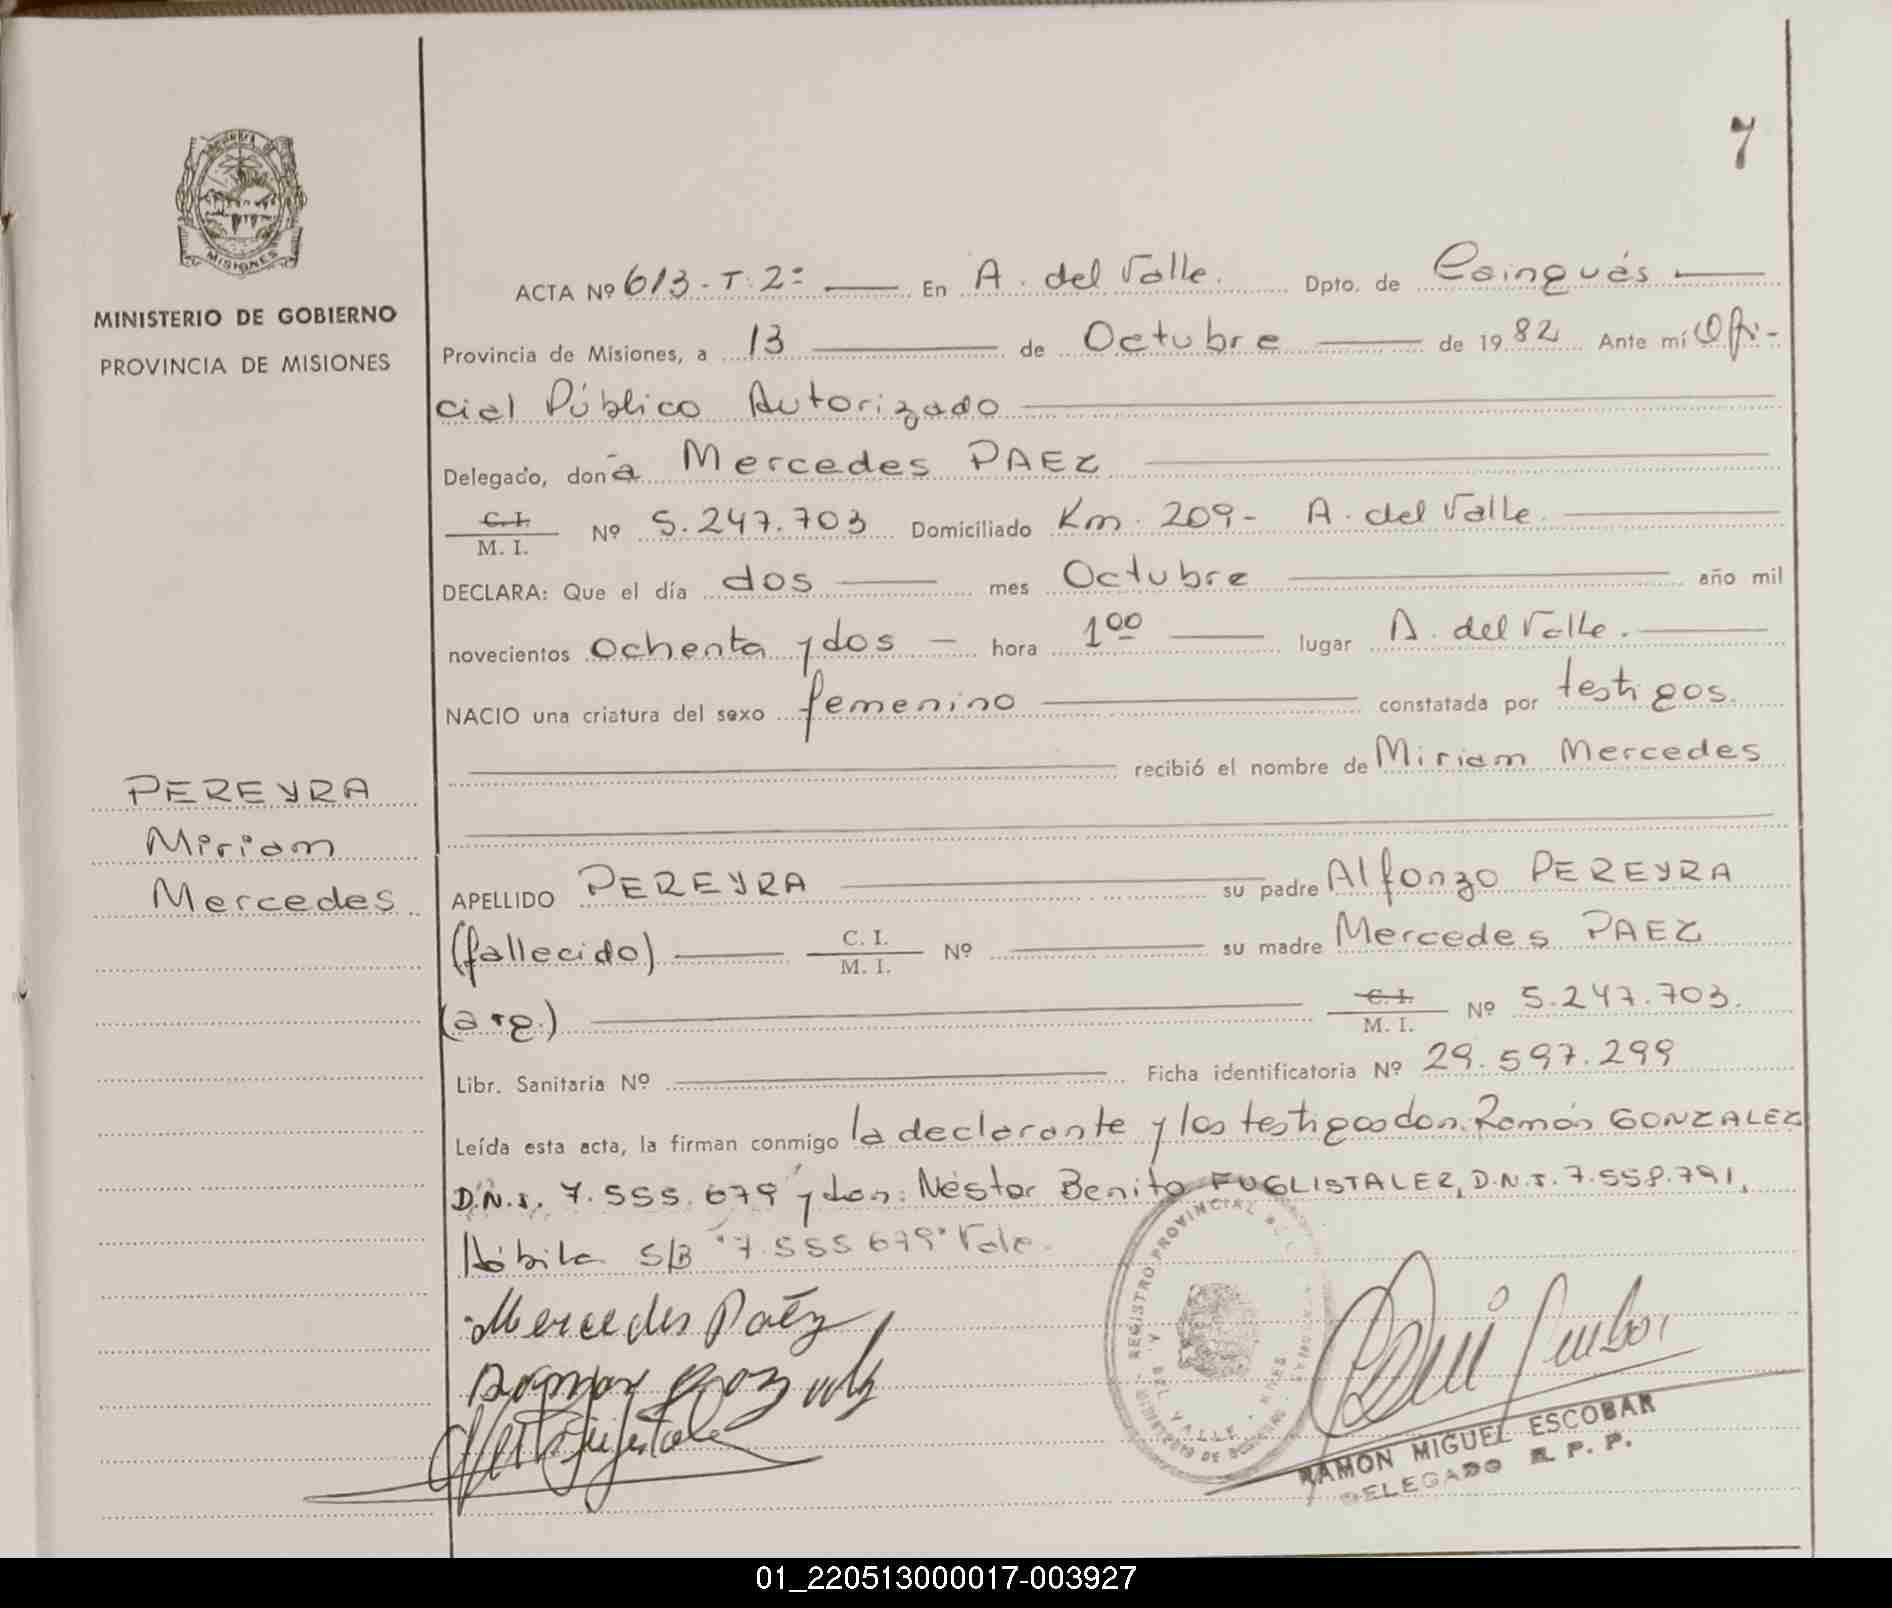 7
MISIONES
MINISTERIO DE GOBIERNO
PROVINCIA DE MISIONES
ACTA Nº 613-T.2º En A. del Valle. Dpto. de Cainguás
Provincia de Misiones, a 13 de Octubre de 1982 Ante mí Ofi-
cial Público Autorizado
Delegado, doña Mercedes PAEZ
C.I. M. I. Nº 5.247.703 Domiciliado Km. 209- A. del Valle.
DECLARA: Que el día dos mes Octubre año mil
novecientos ochenta y dos hora 1⁰⁰ lugar A. del Valle.
NACIO una criatura del sexo femenino constatada por testigos.
recibió el nombre de Miriam Mercedes
PEREYRA
Miriam
Mercedes
APELLIDO PEREYRA su padre Alfonzo PEREYRA
(fallecido) C. I. M. I. Nº su madre Mercedes PAEZ
(arg.) C.I. M. I. Nº 5.247.703.
Libr. Sanitaria Nº Ficha identificatoria Nº 29.597.299
Leída esta acta, la firman conmigo la declarante y los testigos don: Ramón GONZALEZ
D.N.I. 7.555.679 y don: Néstor Benito FUGLISTALER, D.N.I. 7.558.791.
Hábila S/B "7.555.679" Vale.
Mercedes Paéz
REGISTRO PROVINCIAL
DEL VALLE
RAMON MIGUEL ESCOBAR
DELEGADO R. P. P.
01_220513000017-003927